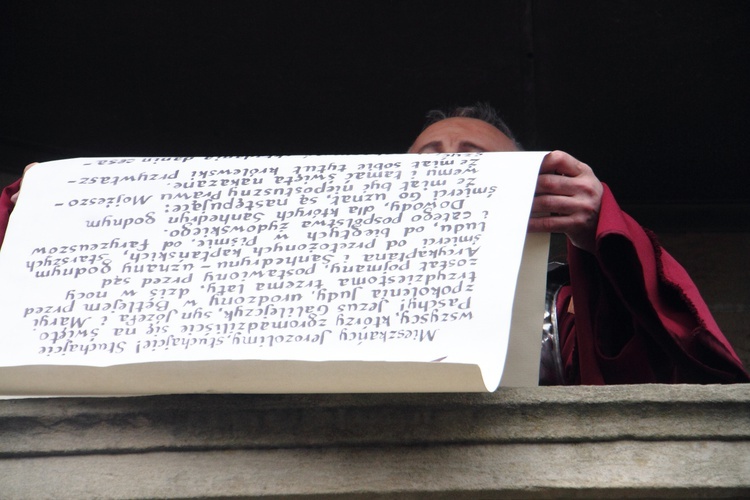 Mieszkańcy Jerozolimy, słuchajcie! Słuchajcie
wszyscy, którzy zgromadziliście się na święto
Paschy! Jezus Galilejczyk, syn Józefa i Maryi
zpokolenia Judy, urodzony w Betlejem przed
trzydziestoma trzema laty, dziś w nocy
został pojmany, postawiony przed sąd
Arcykapłana i Sanhedrynu – uznany godnym
śmierci od przełożonych kapłańskich, Starszych
ludu, od biegłych w Piśmie, od Faryzeuszów
i całego pospólstwa żydowskiego.
Dowody, dla których Sanhedryn godnym
śmierci Go uznał, są następujące:
że miał być nieposłuszny Prawu Mojżeszo-
wemu i łamać święta nakazane.
że miał sobie tytuł królewski Przywłasz-
danin cesa-